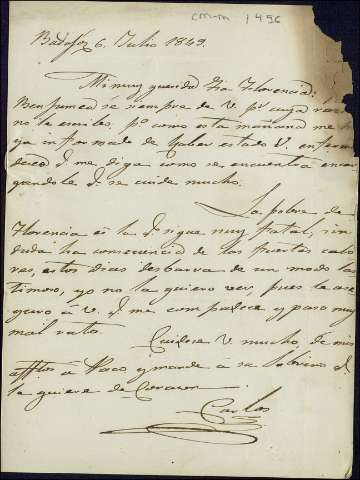 CMM 1496
Badajoz 6. Julio 1849.
Mi muy querida tia Florencia:
siempre de V. pr. cuya
no la pr. como esta mañana me
ya informado de haber estado V.
me diga como se encuentra
se cuide mucho.
La pobre de
Florencia es la q. sigue muy fatal, sin
duda ha consecuencia de los fuertes calo
res, estos dias de un modo las
timoso, yo no la quiero ver, pues le ase
guro á V. q. me compadece y paso muy
mal rato.
Cuidese V. mucho, de mis
afftos á Paco, y mande á su Sobrino q.
la quiere de Corazon
Carlos